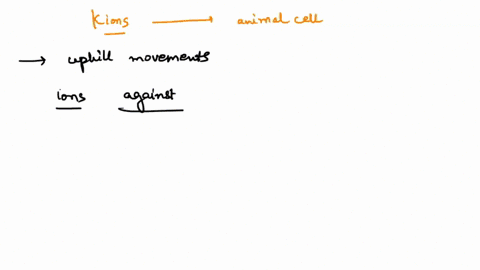 Kions → animal cell
→ uphill movements
ions against